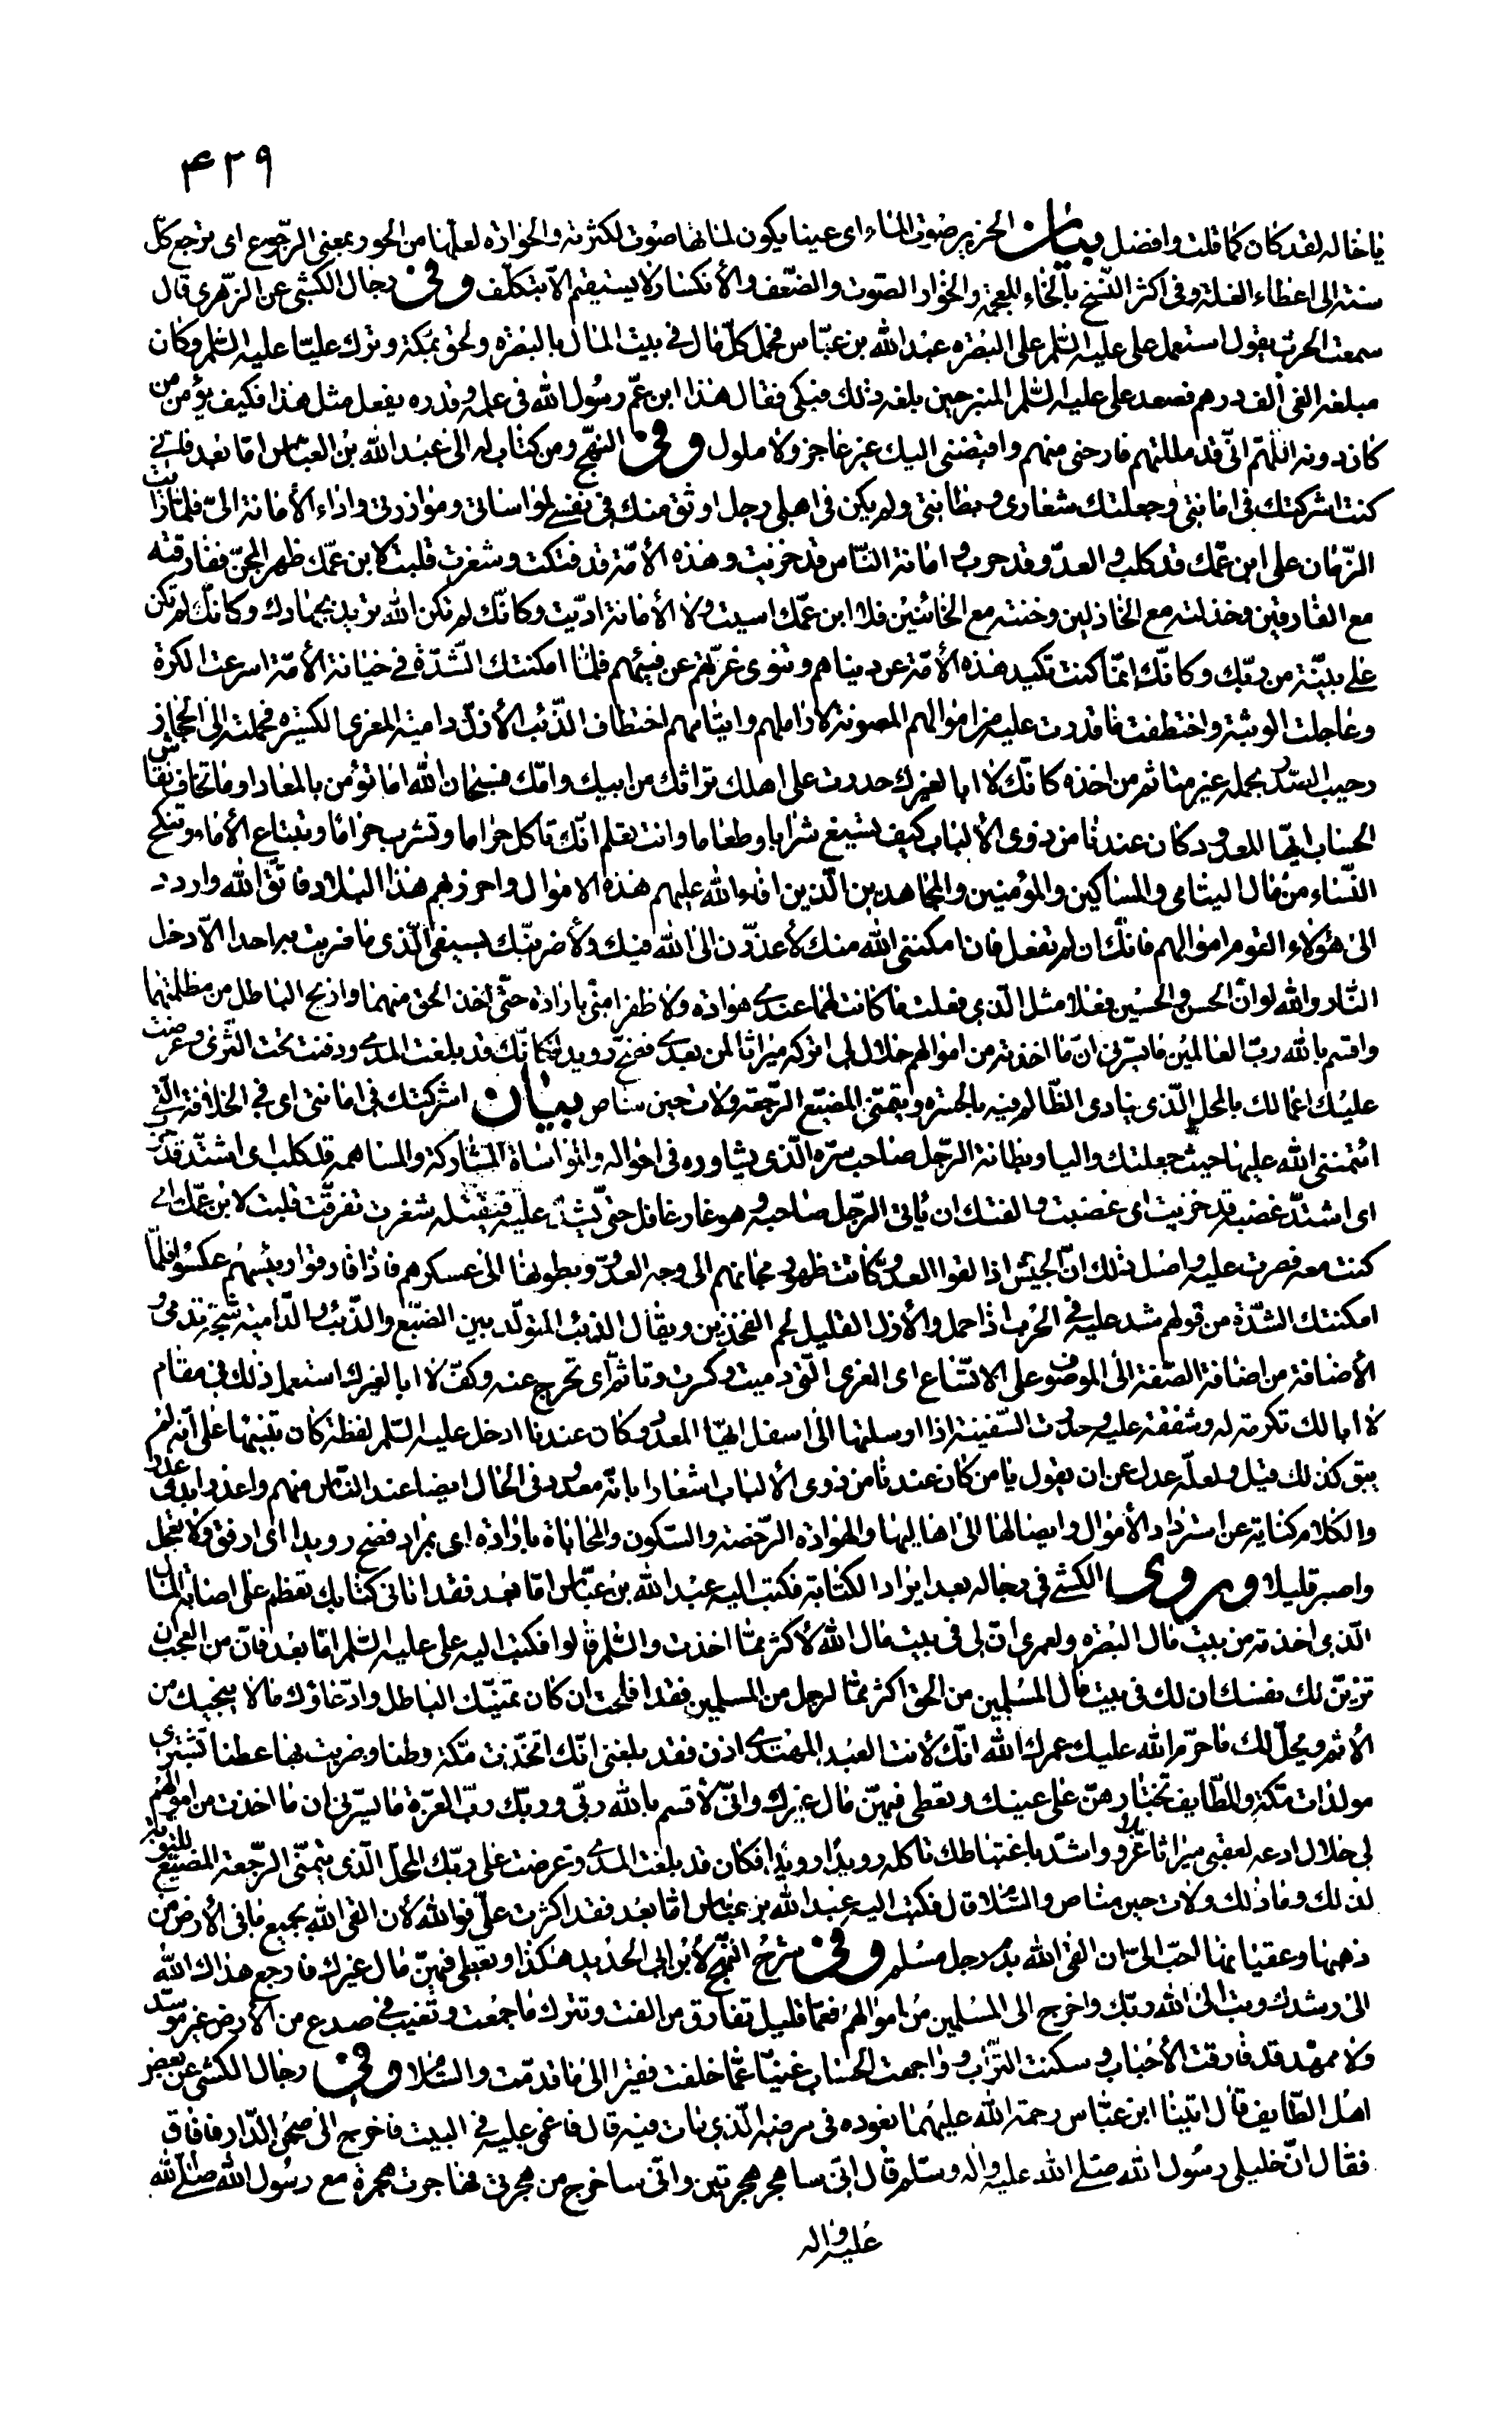 ۴۲۹
يا خاله لقد كان كما قلت وافضل بيان الخرير صوت الماء اى عينا يكون لمائها صوت لكثرته والحوارة لعلّها من الحور بمعنى الرّجوع اى يرجع كلّ
سنة الى اعطاء الغلة وفى اكثر النّسخ بالخاء المعجمة والخوار الصوت والضّعف والأنكسار ولا يستقيم الّا بتكلّف وفى رجال الكشّى عن الزّهرى قال
سمعت الحرث يقول استعمل على عليه السّلم على البصره عبد الله بن عبّاس فحمل كلّ مال فى بيت المال بالبصره ولحق بمكّة وترك عليّا عليه السّلم وكان
مبلغه الفى الف درهم فصعد على عليه السّلم المنبر حين بلغه ذلك فبكى فقال هذا ابن عمّ رسول الله فى علمه وقدره يفعل مثل هذا فكيف يؤمن من
كان دونه اللّهمّ انّى قد مللتهم فارحنى منهم واقبضنى اليك غير عاجز ولا ملول وفى النهج ومن كتاب له الى عبد الله بن العبّاس امّا بعد فانّى
كنت اشركتك فى امانتى وجعلتك شعارى وبطانتى ولم يكن فى اهلى رجل اوثق منك فى نفسى لمواساتى وموازرتى واداء الأمانة الىّ فلمّا رايت
الزّمان على ابن عمّك قد كلب والعدوّ قد حرب وامانة النّاس قد خزيت وهذه الأمّة قد فتكت وشغرت قلبت لابن عمّك ظهر المجنّ ففارقته
مع المفارقين وخذلته مع الخاذلين وخنته مع الخائنين فلا ابن عمّك اسيت ولا الأمانة ادّيت وكانّك لم تكن الله تريد بجهادك وكانّك لم تكن
على بيّنة من ربّك وكانّك انمّا كنت تكيد هذه الأمّة عن دنياهم وتنوى غرّتهم عن فيئهم فلمّا امكنتك الشّدّة فى خيانة الأمّة اسرعت الكرّة
وعاجلت الوثبة واختطفت ما قدرت عليه من اموالهم المصونة لاراملهم وايتامهم اختطاف الذّئب الأزلّ دامية المعزى الكسيره فحملته الى الحجاز
رحيب الصّدر بحمله غير متاثم من اخذه كانّك لا ابا لغيرك حدرت على اهلك تراثك من ابيك وامّك فسبحان الله اما تؤمن بالمعاد او ما تخاف نقاش
الحساب ايّها المعدود كان عندنا من ذوى الألباب كيف تسيغ شرابا وطعاما وانت تعلم انّك تاكل حراما وتشرب حراما وتبتاع الأماء وتنكح
النّساء من مال اليتامى والمساكين والمؤمنين والمجاهدين الّذين افاء الله عليهم هذه الاموال واحرز بهم هذا البلاد فاتّق الله واردد
الى هؤلاء القوم اموالهم فانّك ان لم تفعل فان امكننى الله منك لأعذرّن الى الله فيك ولأضربنّك بسيفى الّذى ما ضربت به احدا الّا دخل
النّار والله لو انّ الحسن والحسين فعلا مثل الّذى فعلت ما كانت لهما عندى هواده ولا ظفرا منّى بارادة حتّى اخذ الحق منهما وازيح الباطل من مظلمتهما
واقسم بالله ربّ العالمين ما يسرّنى انّ ما اخذته من اموالهم حلال لى اتركه ميراثا لمن بعدى فضحّ رويدا فكانّك قد بلغت المدى ودفنت تحت الثّرى وعرضت
عليك اعمالك بالمحلّ الّذى ينادى الظّالم فيه بالحسرة ويتمنّى المضيّع الرّجعة ولات حين مناص بيان اشركتك فى امانتى اى فى الخلافة التّى
ائتمننى الله عليها حيث جعلتك واليا وبطانة الرّجل صاحب سرّه الّذى يشاوره فى احواله والمواساة المشاركة والمساهمه قد كلب اى اشتدّ قد حرب
اى اشتدّ غضبه قد خزيت اى غضبت والفتك ان ياتى الرّجل صاحبه وهو غار غافل حتى يشدّ عليه فيقتله شغرت تفرّقت قلبت لابن عمّك اى
كنت معه فصرت عليه واصل ذلك انّ الجيش اذا لقوا العدوّ كانت ظهور مجانّهم الى وجه العدوّ وبطونها الى عسكرهم فاذا فارقوا رئيسهم عكسوا فلمّا
امكنتك الشّدّة من قولهم شد عليه فى الحرب اذا حمل والأزل القليل لحم الفخذين ويقال الذئب المتولّد بين الضّبع والذّئب والدّامية شجّة تدمى و
الأضافة من اضافة الصّفة الى الموصوف على الاتّساع اى المعزى الّتى دميت وكسرت وتاثّم اى تحرج عنه وكفّ لا ابا لغيرك استعمل ذلك فى مقام
لا ابا لك تكرمة له وشفقة عليه وحدرت السّفينة اذا ارسلتها الى اسفل ايّها المعدود كان عندنا ادخل عليه السّلم لفظة كان تنبيها على انّه لم
يبق كذلك قيل ولعلّه عدل عن ان يقول يا من كان عندنا من ذوى الألباب اشعارا بانّه معدود فى الحال ايضا عند النّاس منهم واعذر ابدى عذرا
والكلام كناية عن استرداد الأموال وايصالها الى اهاليها والهواده الرّخصة والسّكون والمحاباة بارادة اى بمراد فضح رويدا اى ارفق ولا تعجل
واصبر قليلا وروى الكشى فى رجاله بعد ايراد الكتابة فكتب اليه عبد الله بن عبّاس امّا بعد فقد اتانى كتابك تعظم على اصابة المال
الّذى اخذته من بيت مال البصره ولعمرى انّ لى فى بيت مال الله لأكثر ممّا اخذت والسّلم قال فكتب اليه على عليه السّلم امّا بعد فانّ من العجب ان
تزيّن لك نفسك ان لك فى بيت مال المسلمين من الحق اكثر ممّا لرجل من المسلمين فقد افلحت ان كان تمنيّك الباطل وادّعاؤك مالا ينجيك من
الأثم ويحلّ لك ما حرّم الله عليك عمرك الله انّك لأنت العبد المهتدى اذن فقد بلغنى انّك اتخّذت مكّة وطنا وضربت بها عطنا تشترى
مولدات مكّة والطّايف تختارهنّ على عينك وتعطى فيهنّ مال غيرك وانّى لأقسم بالله ربّى وربّك ربّ العزّة ما يسرّنى ان ما اخذت من اموالهم
لى حلال ادعه لعقبى ميراثا فلا غرو واشدّ باغتباطك تاكله رويدا رويدا فكان قد بلغت المدى وعرضت على ربّك المحلّ الّذى يتمنّى الرّجعة المضيّع للتّوبة
لذلك وما ذلك ولات حين مناص والسّلام قال فكتب اليه عبد الله بن عبّاس امّا بعد فقد اكثرت علىّ فوالله لأن القى الله بجميع ما فى الأرض من
ذهبها وعقيانها احبّ الىّ ان القى الله بدم رجل مسلم وفى شرح النّهج لأبن ابى الحديد هكذا وتعطى فيهنّ مال غيرك فارجع هداك الله
الى رشدك وتب الى الله ربّك واخرج الى المسلمين من اموالهم فعمّا قليل تفارق من الفت وتترك ما جمعت وتغيب فى صدع من الأرض غير موسّد
ولا ممهّد قد فارقت الأحباب وسكنت التّراب وواجهت الحساب غنيّا عمّا خلفت فقيرا الى ما قدمّت والسّلام وفى رجال الكشى عن بعض
اهل الطّايف قال اتينا ابن عبّاس رحمة الله عليهما نعوده فى مرضه الّذى مات فيه قال فاغمى عليه فى البيت فاخرج الى صحن الدّار فافاق
فقال انّ خليلى رسول الله صلى الله عليه واله وسلم قال انّى ساهجر هجرتين وانّى ساخرج من هجرتى فهاجرت هجرة مع رسول الله صلى الله
عليه واله